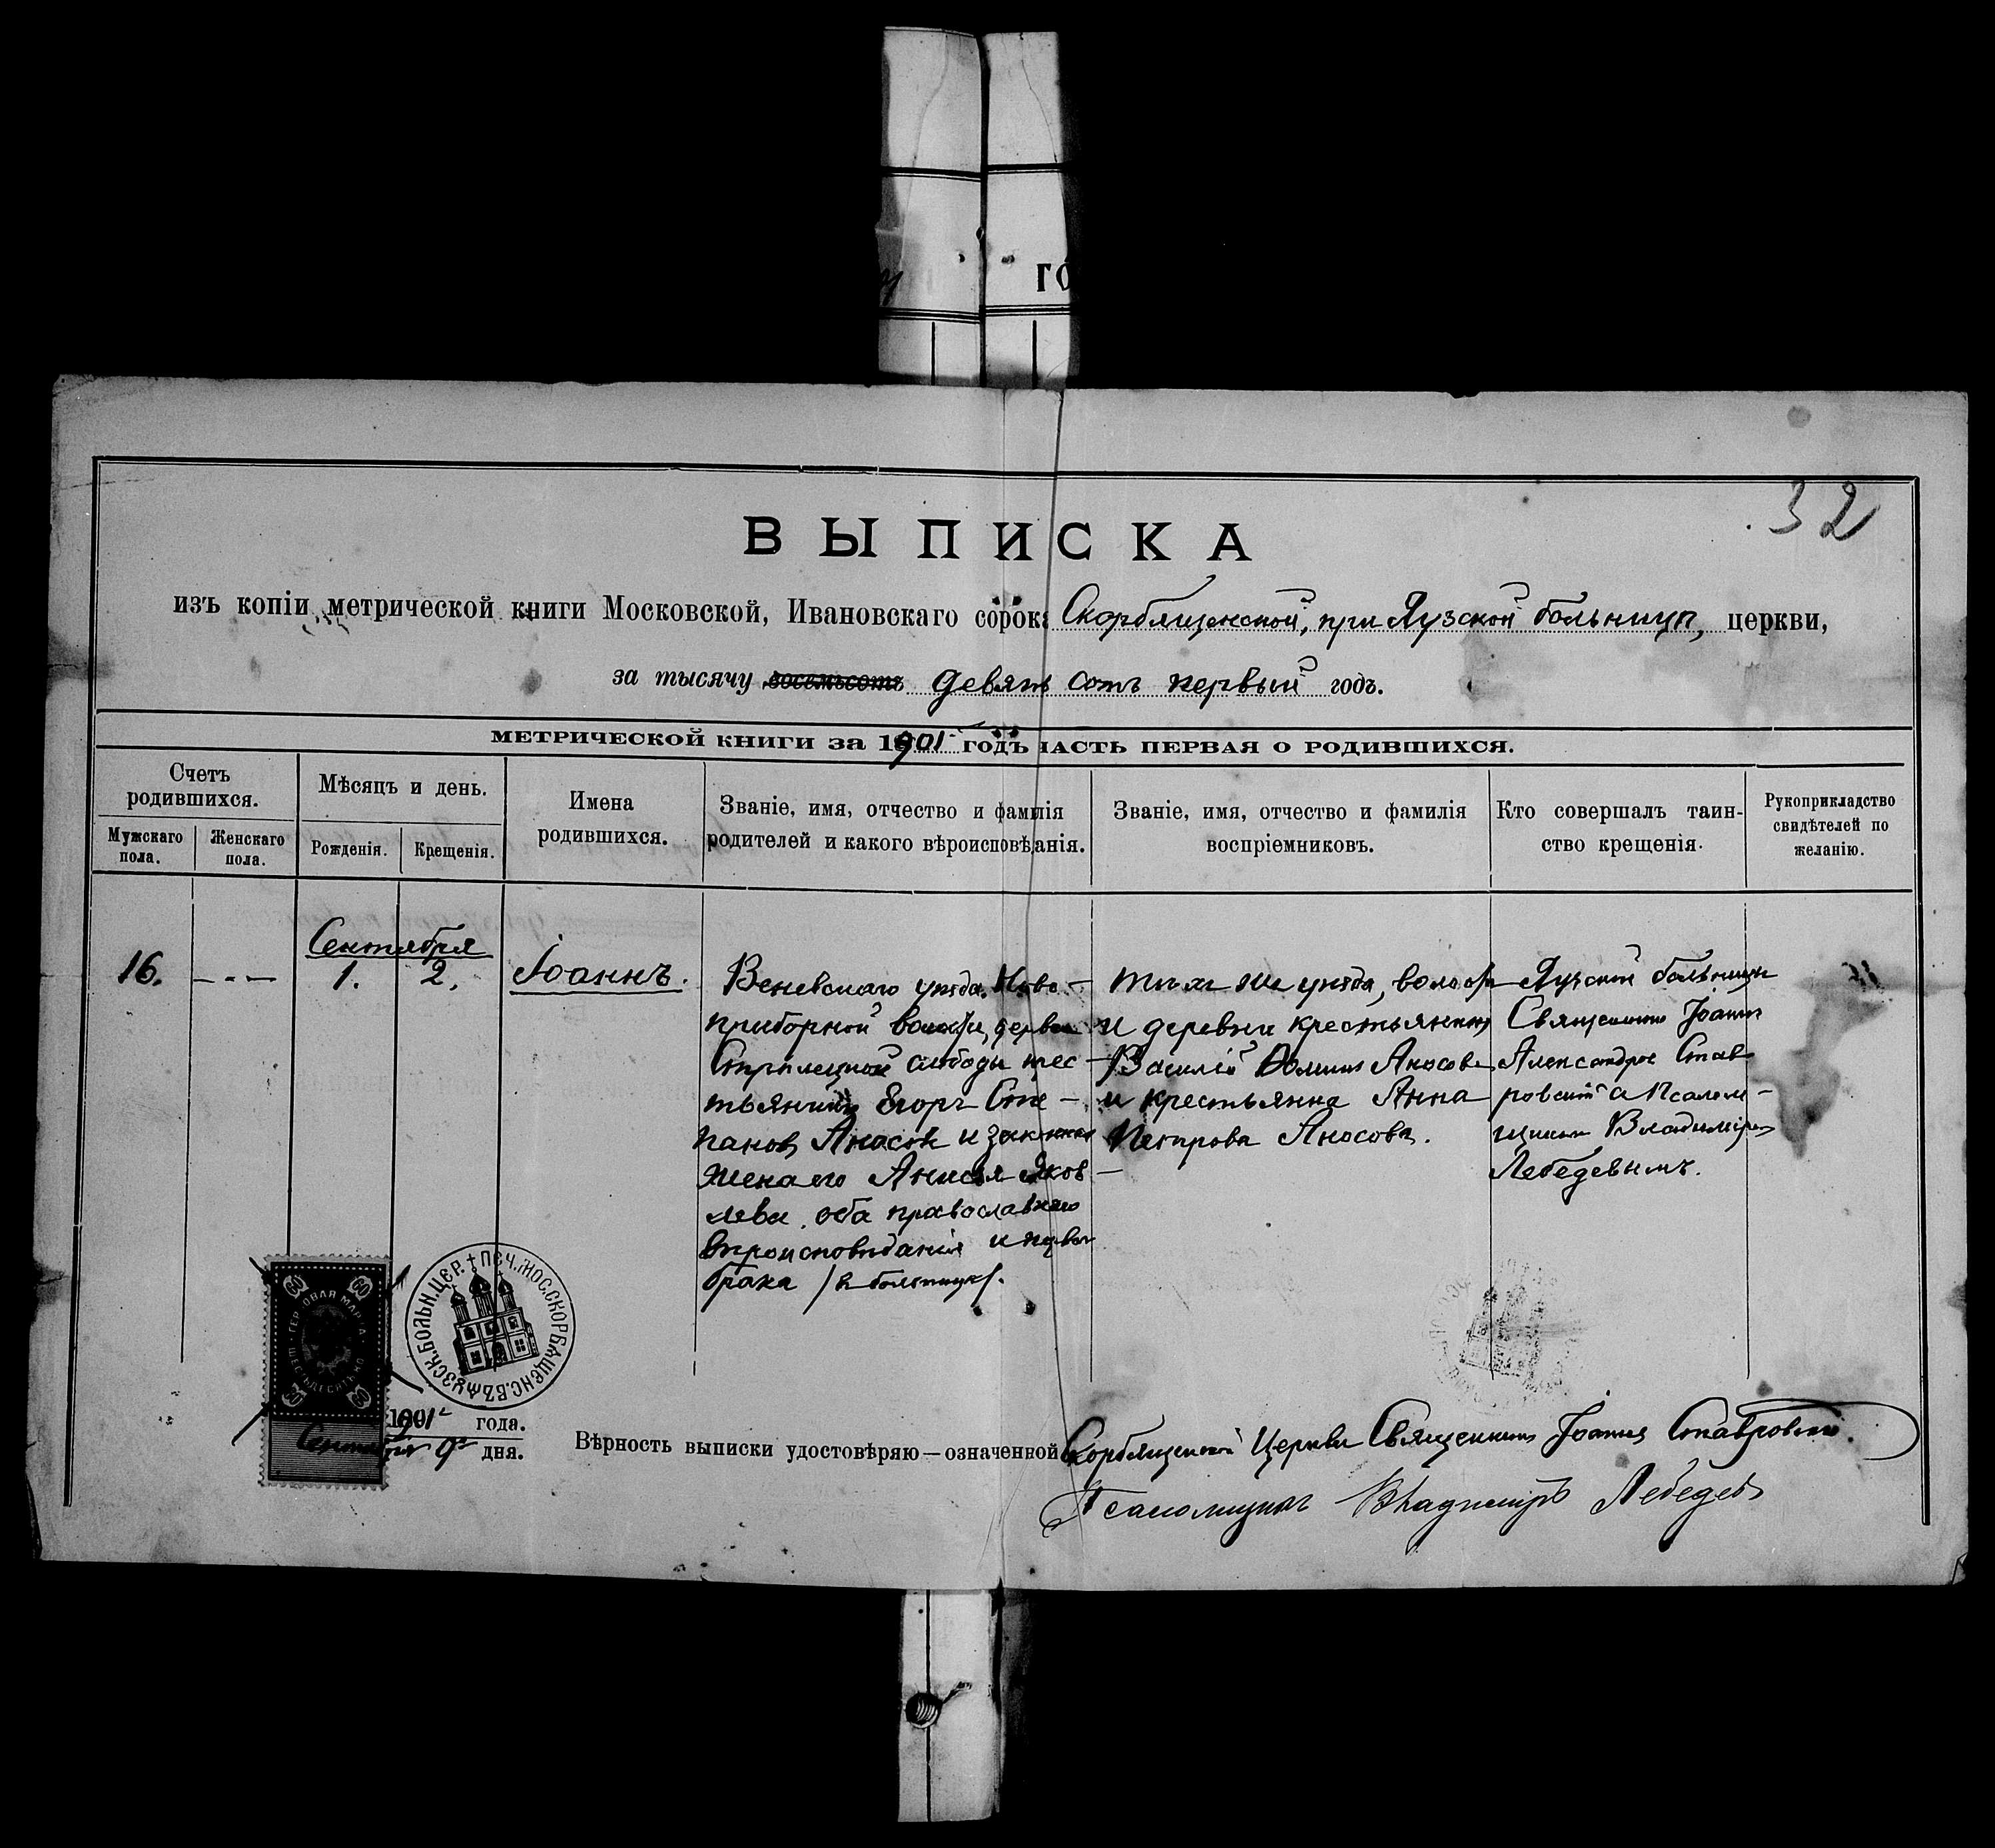 ГО
32
ВЫПИСКА
изъ копіи метрической книги Московской, Ивановскаго сорока Скорбященской, при Яузской больницѣ, церкви,
за тысячу восемьсотъ девять сотъ первый годъ.
МЕТРИЧЕСКОЙ КНИГИ за 1901 годъ ЧАСТЬ ПЕРВАЯ О РОДИВШИХСЯ.
Счетъ родившихся.
Мужскаго пола.
Женскаго пола.
Мѣсяцъ и день.
Рожденія.
Крещенія.
Имена родившихся.
Званіе, имя, отчество и фамилія
родителей и какого вѣроисповѣданія.
Званіе, имя, отчество и фамилія
воспріемниковъ.
Кто совершалъ таин-
ство крещенія.
Рукоприкладство
свидѣтелей по
желанію.
16.
---
Сентября
1.
2.
Іоаннъ.
Веневскаго уѣзда, Ново-
приборной волости, деревни
Стрѣлецкой слободы крес-
тьянинъ Егоръ Сте-
пановъ Аносовъ и законная
жена его Анисья Яков-
лева, оба православнаго
вѣроисповѣданія и перваго
брака /въ больницѣ/.
Тѣхъ же уѣзда, волости
и деревни крестьянинъ
Василій Аносовъ
и крестьянка Анна
Петрова Аносова.
Яузской больницы
Священникъ Іоаннъ
Александровъ Став-
ровскій съ Псалом-
щикомъ Владиміромъ
Лебедевымъ.
ГЕРБОВАЯ МАРКА
ШЕСТЬДЕСЯТЪ К
60
60
60
60
ПЕЧ. МОС. СКОРБЯЩЕНС. ВЪ ЯУЗСК. БОЛЬН. ЦЕР.
1901 года.
Сентября 9 дня.
Вѣрность выписки удостовѣряю—означенной Скорбященской Церкви Священникъ Іоаннъ Ставровскій.
Псаломщикъ Владиміръ Лебедевъ